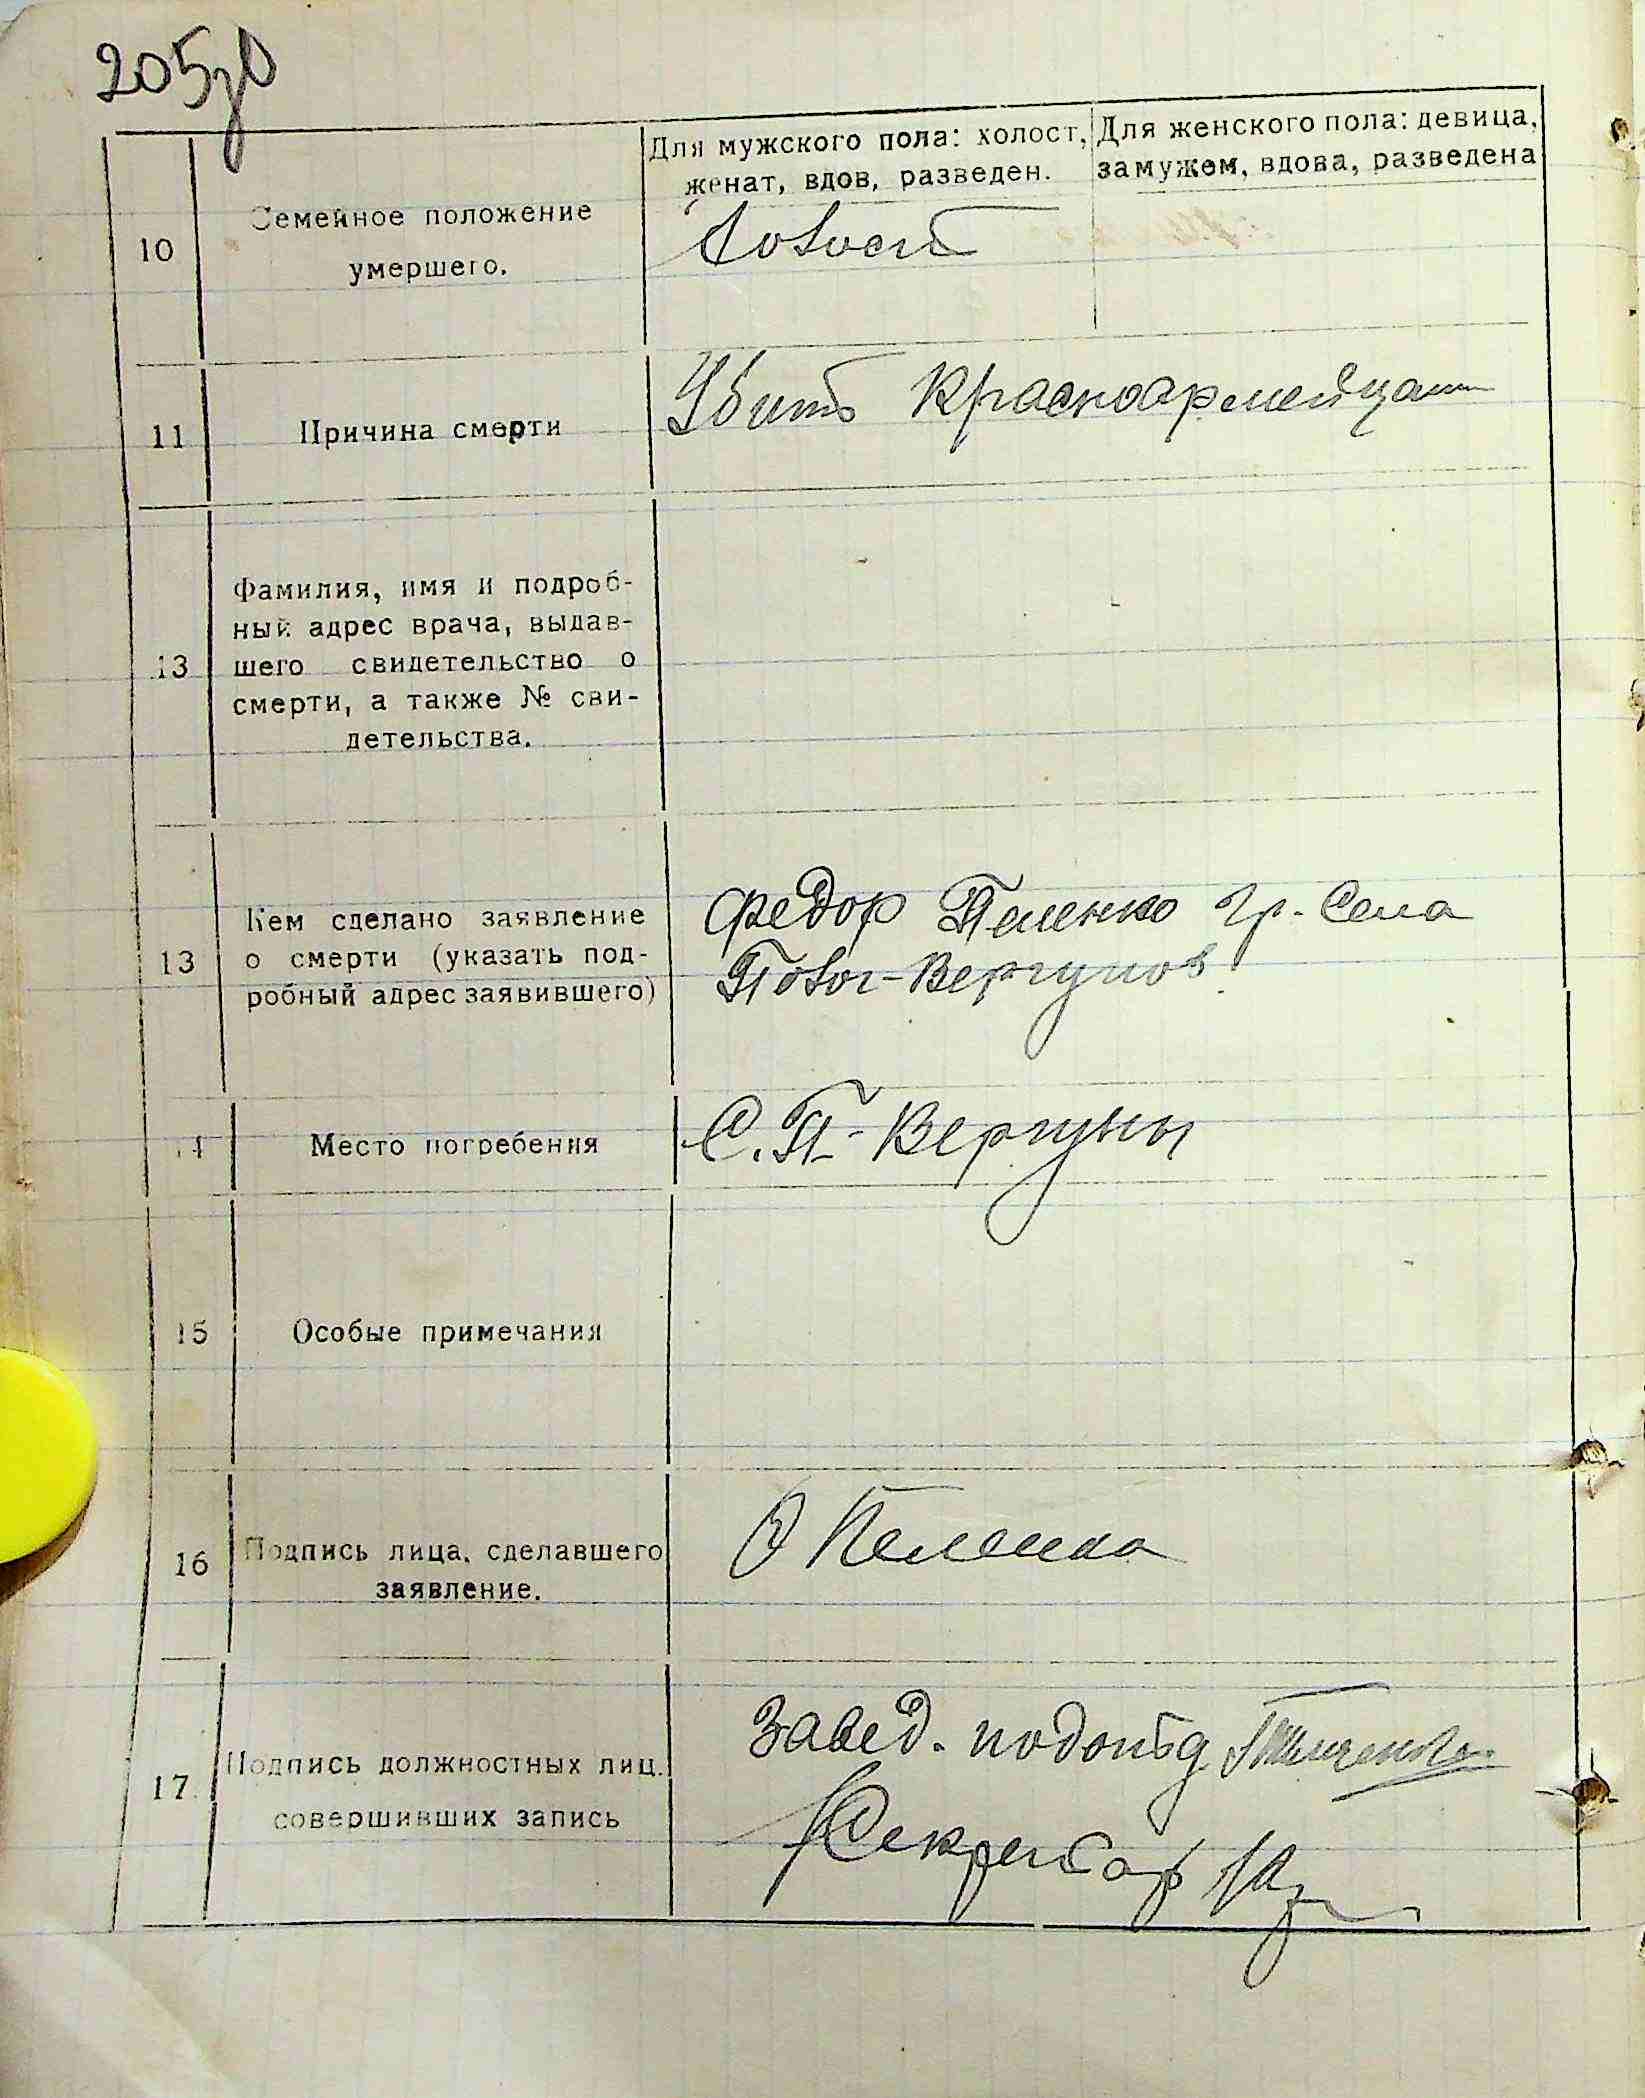 205зв
Для мужского пола: холост, Для женского пола: девица,
женат, вдов, разведен. замужем, вдова, разведена
10 Семейное положение
умершего.
Холост
11 Причина смерти
Убитъ Красноармейцами
13 Фамилия, имя и подроб-
ный адрес врача, выдав-
шего свидетельство о
смерти, а также № сви-
детельства.
13 Кем сделано заявление
о смерти (указать под-
робный адрес заявившего)
Федор Пеленко гр. Села
Полог-Вергунов
14 Место погребения
С. П-Вергуны
15 Особые примечания
16 Подпись лица, сделавшего
заявление.
Пеленко
17 Подпись должностных лиц,
совершивших запись
Завед. подотд
Секретар